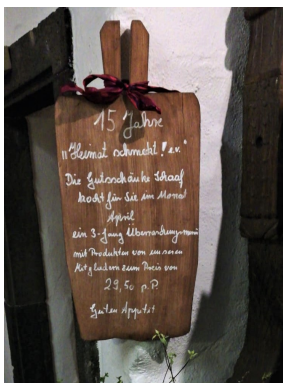 15 Jahre
"Heimat schmeckt! e.V."
Die Gutsschänke Schaaf
kocht für Sie im Monat
April
ein 3-Gang Überraschungsmenü
mit Produkten von unseren
Mitgliedern zum Preis von
29,50 p.P.
Guten Appetit